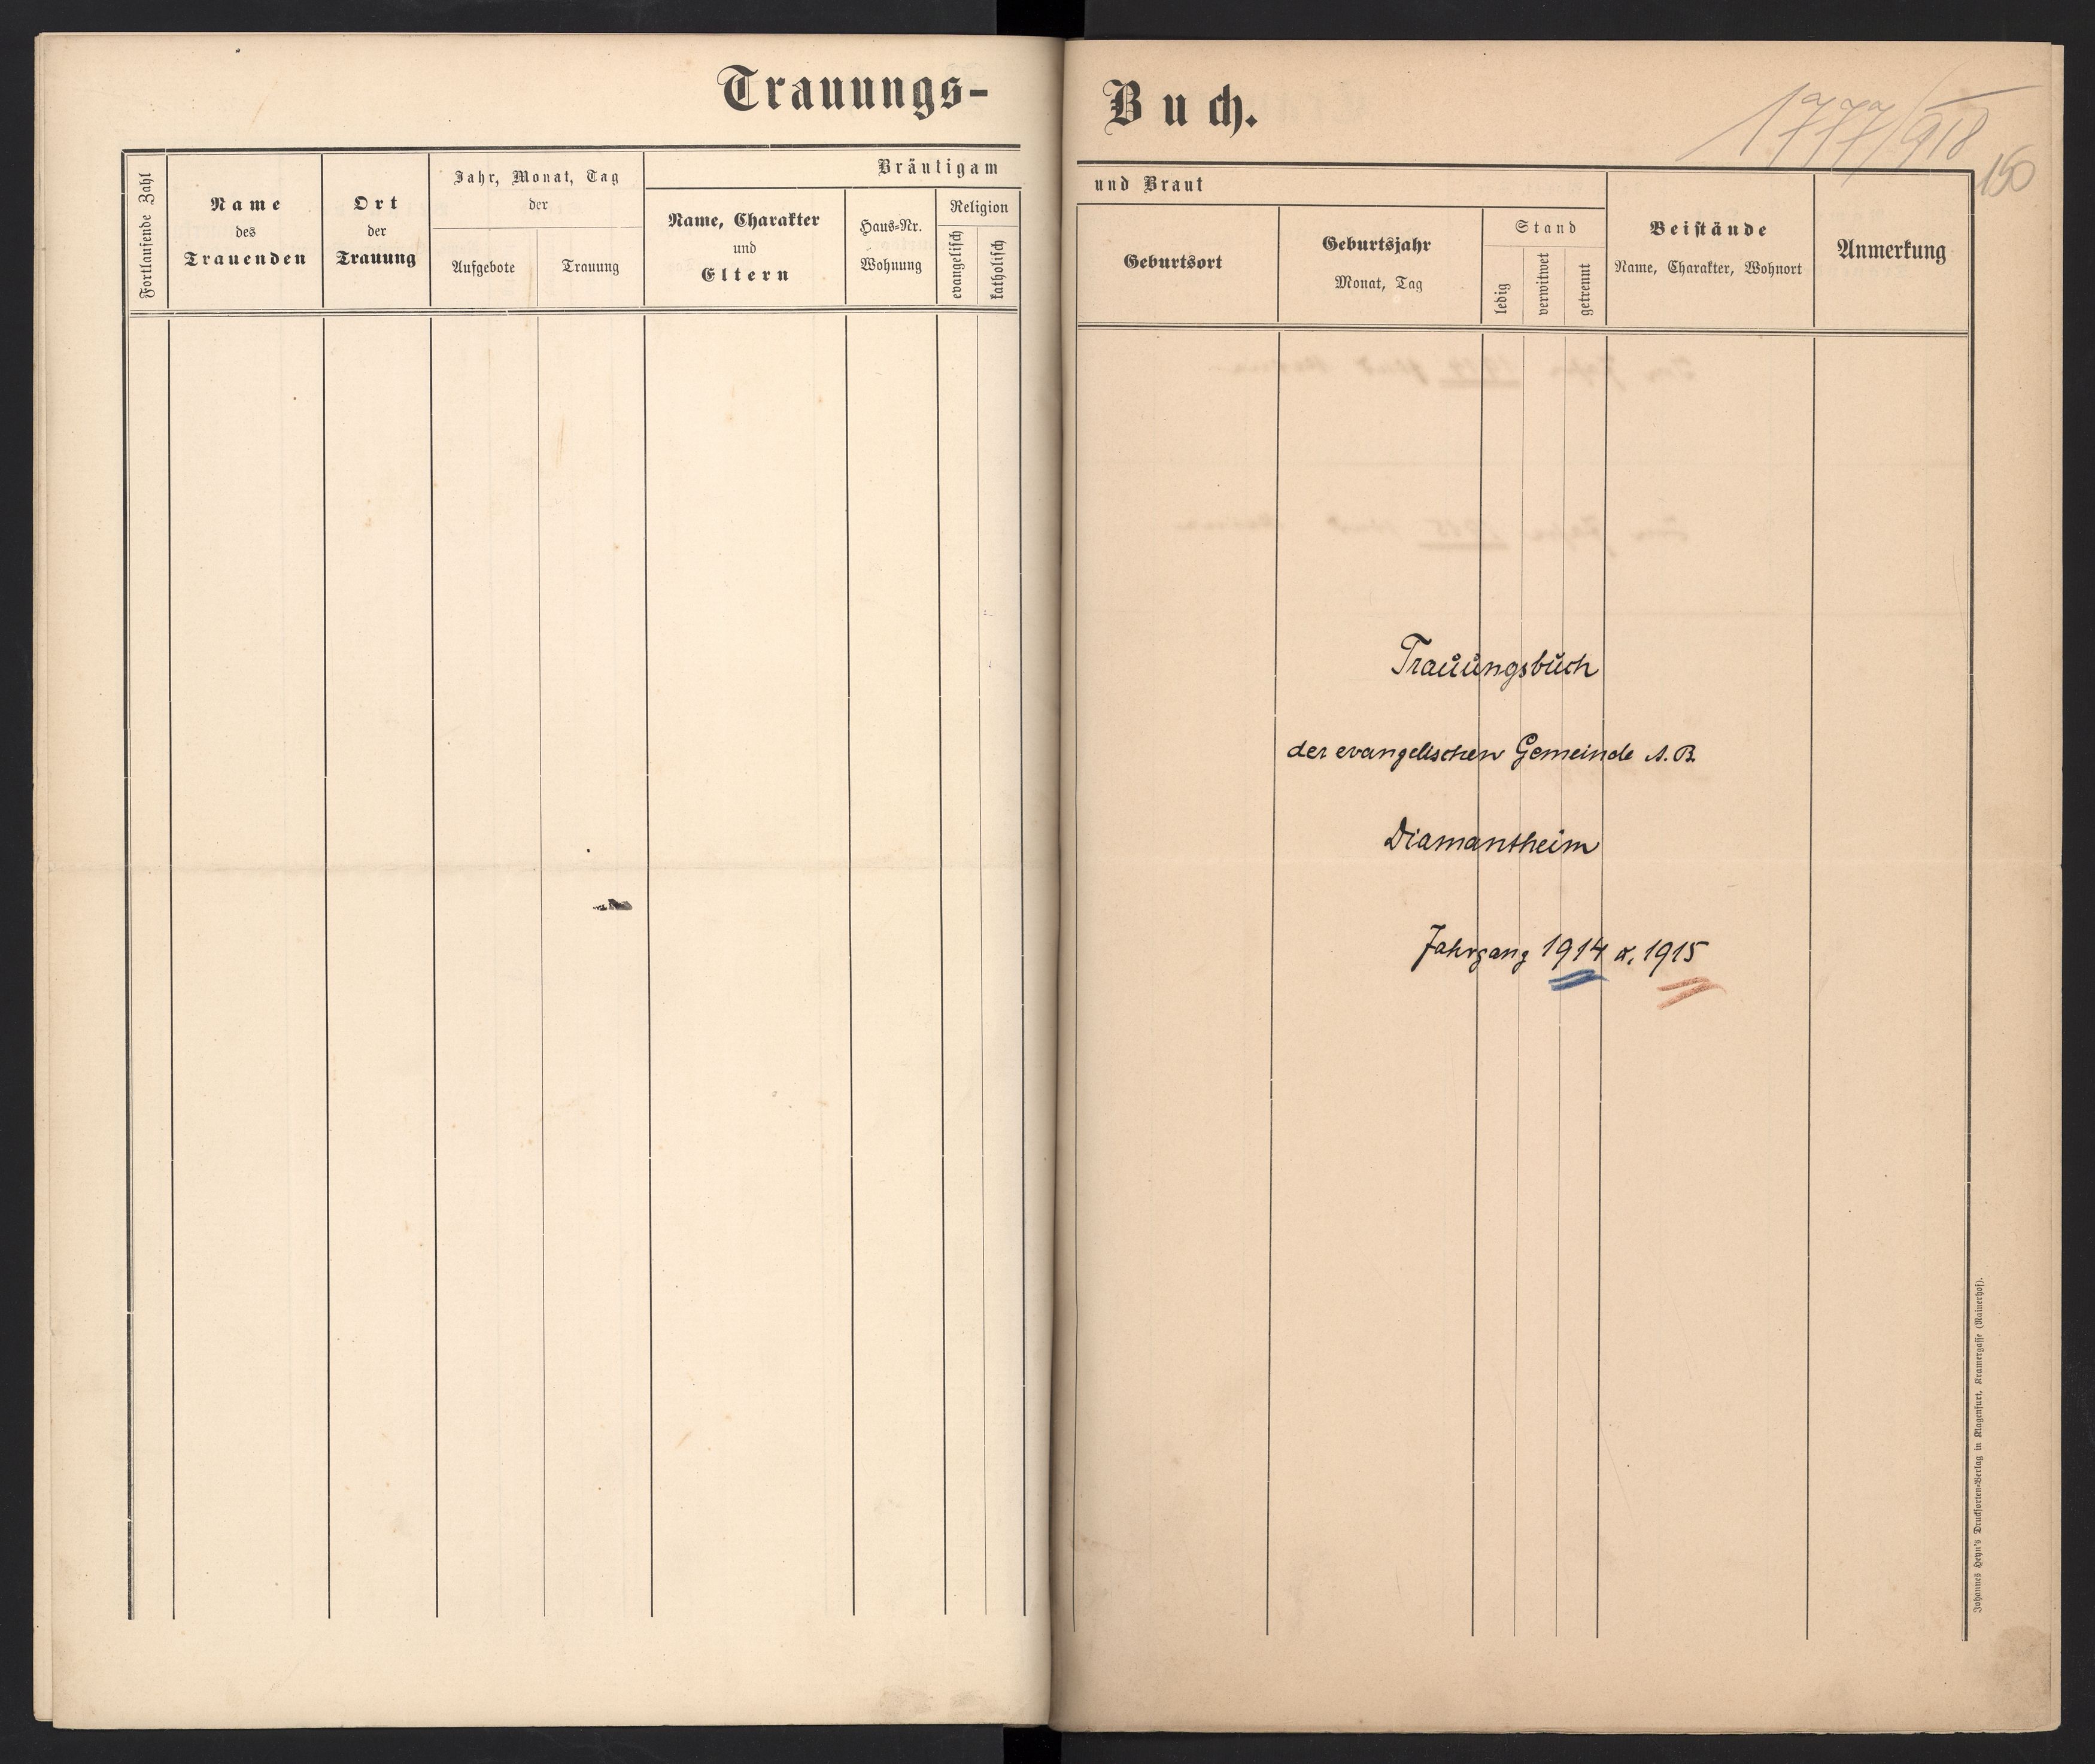 Trauungs-
Fortlaufende Zahl
Name
des
Trauenden
Ort
der
Trauung
Jahr, Monat, Tag
der
Aufgebote
Trauung
Bräutigam
Name, Charakter
und
Eltern
Haus-Nr.
Wohnung
Religion
evangelisch
katholisch
Buch.
1777/918
150
und Braut
Geburtsort
Geburtsjahr
Monat, Tag
Stand
ledig
verwitwet
getrennt
Beistände
Name, Charakter, Wohnort
Anmerkung
Trauungsbuch
der evangelischen Gemeinde A. B.
Diamantheim
Jahrgang 1914 u. 1915
Johannes Heyn's Drucksorten-Verlag in Klagenfurt, Kramergasse (Rainerhof).